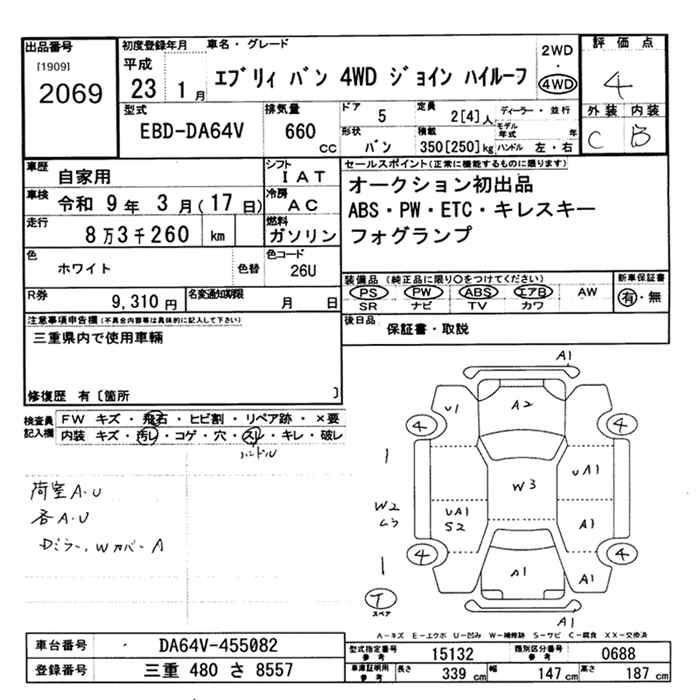 出品番号 初度登録年月 車名・グレード 2WD 評価点
[1909] 平成 ・ 4
2069 23 1月 エブリィ バン 4WD ジョイン ハイルーフ 4WD
型式 排気量 ドア 5 定員 2[4]人 ディーラー・並行 外装 内装
EBD-DA64V 660cc 形状 バン 積載 350[250]kg モデル年式 年 ハンドル 左・右 C B
車歴 自家用 シフト IAT セールスポイント(正常に機能するものに限ります)
車検 令和 9年 3月(17日) 冷房 AC オークション初出品
ABS・PW・ETC・キレスキー
走行 8万3千260 km 燃料 ガソリン フォグランプ
色 ホワイト 色替 色コード 26U
装備品(純正品に限り○をつけてください) 新車保証書
PS PW ABS エアB AW 有・無
SR ナビ TV カワ
R券 9,310円 名変通知期限 月 日
後日品 保証書・取説
注意事項申告欄(不具合内容等は具体的に記入して下さい)
三重県内で使用車輛
修復歴 有〔箇所 〕
検査員記入欄 FW キズ・飛石・ヒビ割・リペア跡・×要
内装 キズ・汚レ・コゲ・穴・スレ・キレ・破レ
ハンドル
荷室A.U
各A.U
Dミラー,Wカバー A
A1
U1 A2
4 4
W3 UA1
W2 UA1
S2 A1
4 4
A1 A1
T
スペア
A1
A-キズ E-エクボ U-凹み W-補修跡 S-サビ C-腐食 XX-交換済
車台番号 DA64V-455082 型式指定番号 参考 15132 類別区分番号 参考 0688
登録番号 三重 480 さ 8557 車庫証明用 参考 長さ 339cm 幅 147cm 高さ 187cm